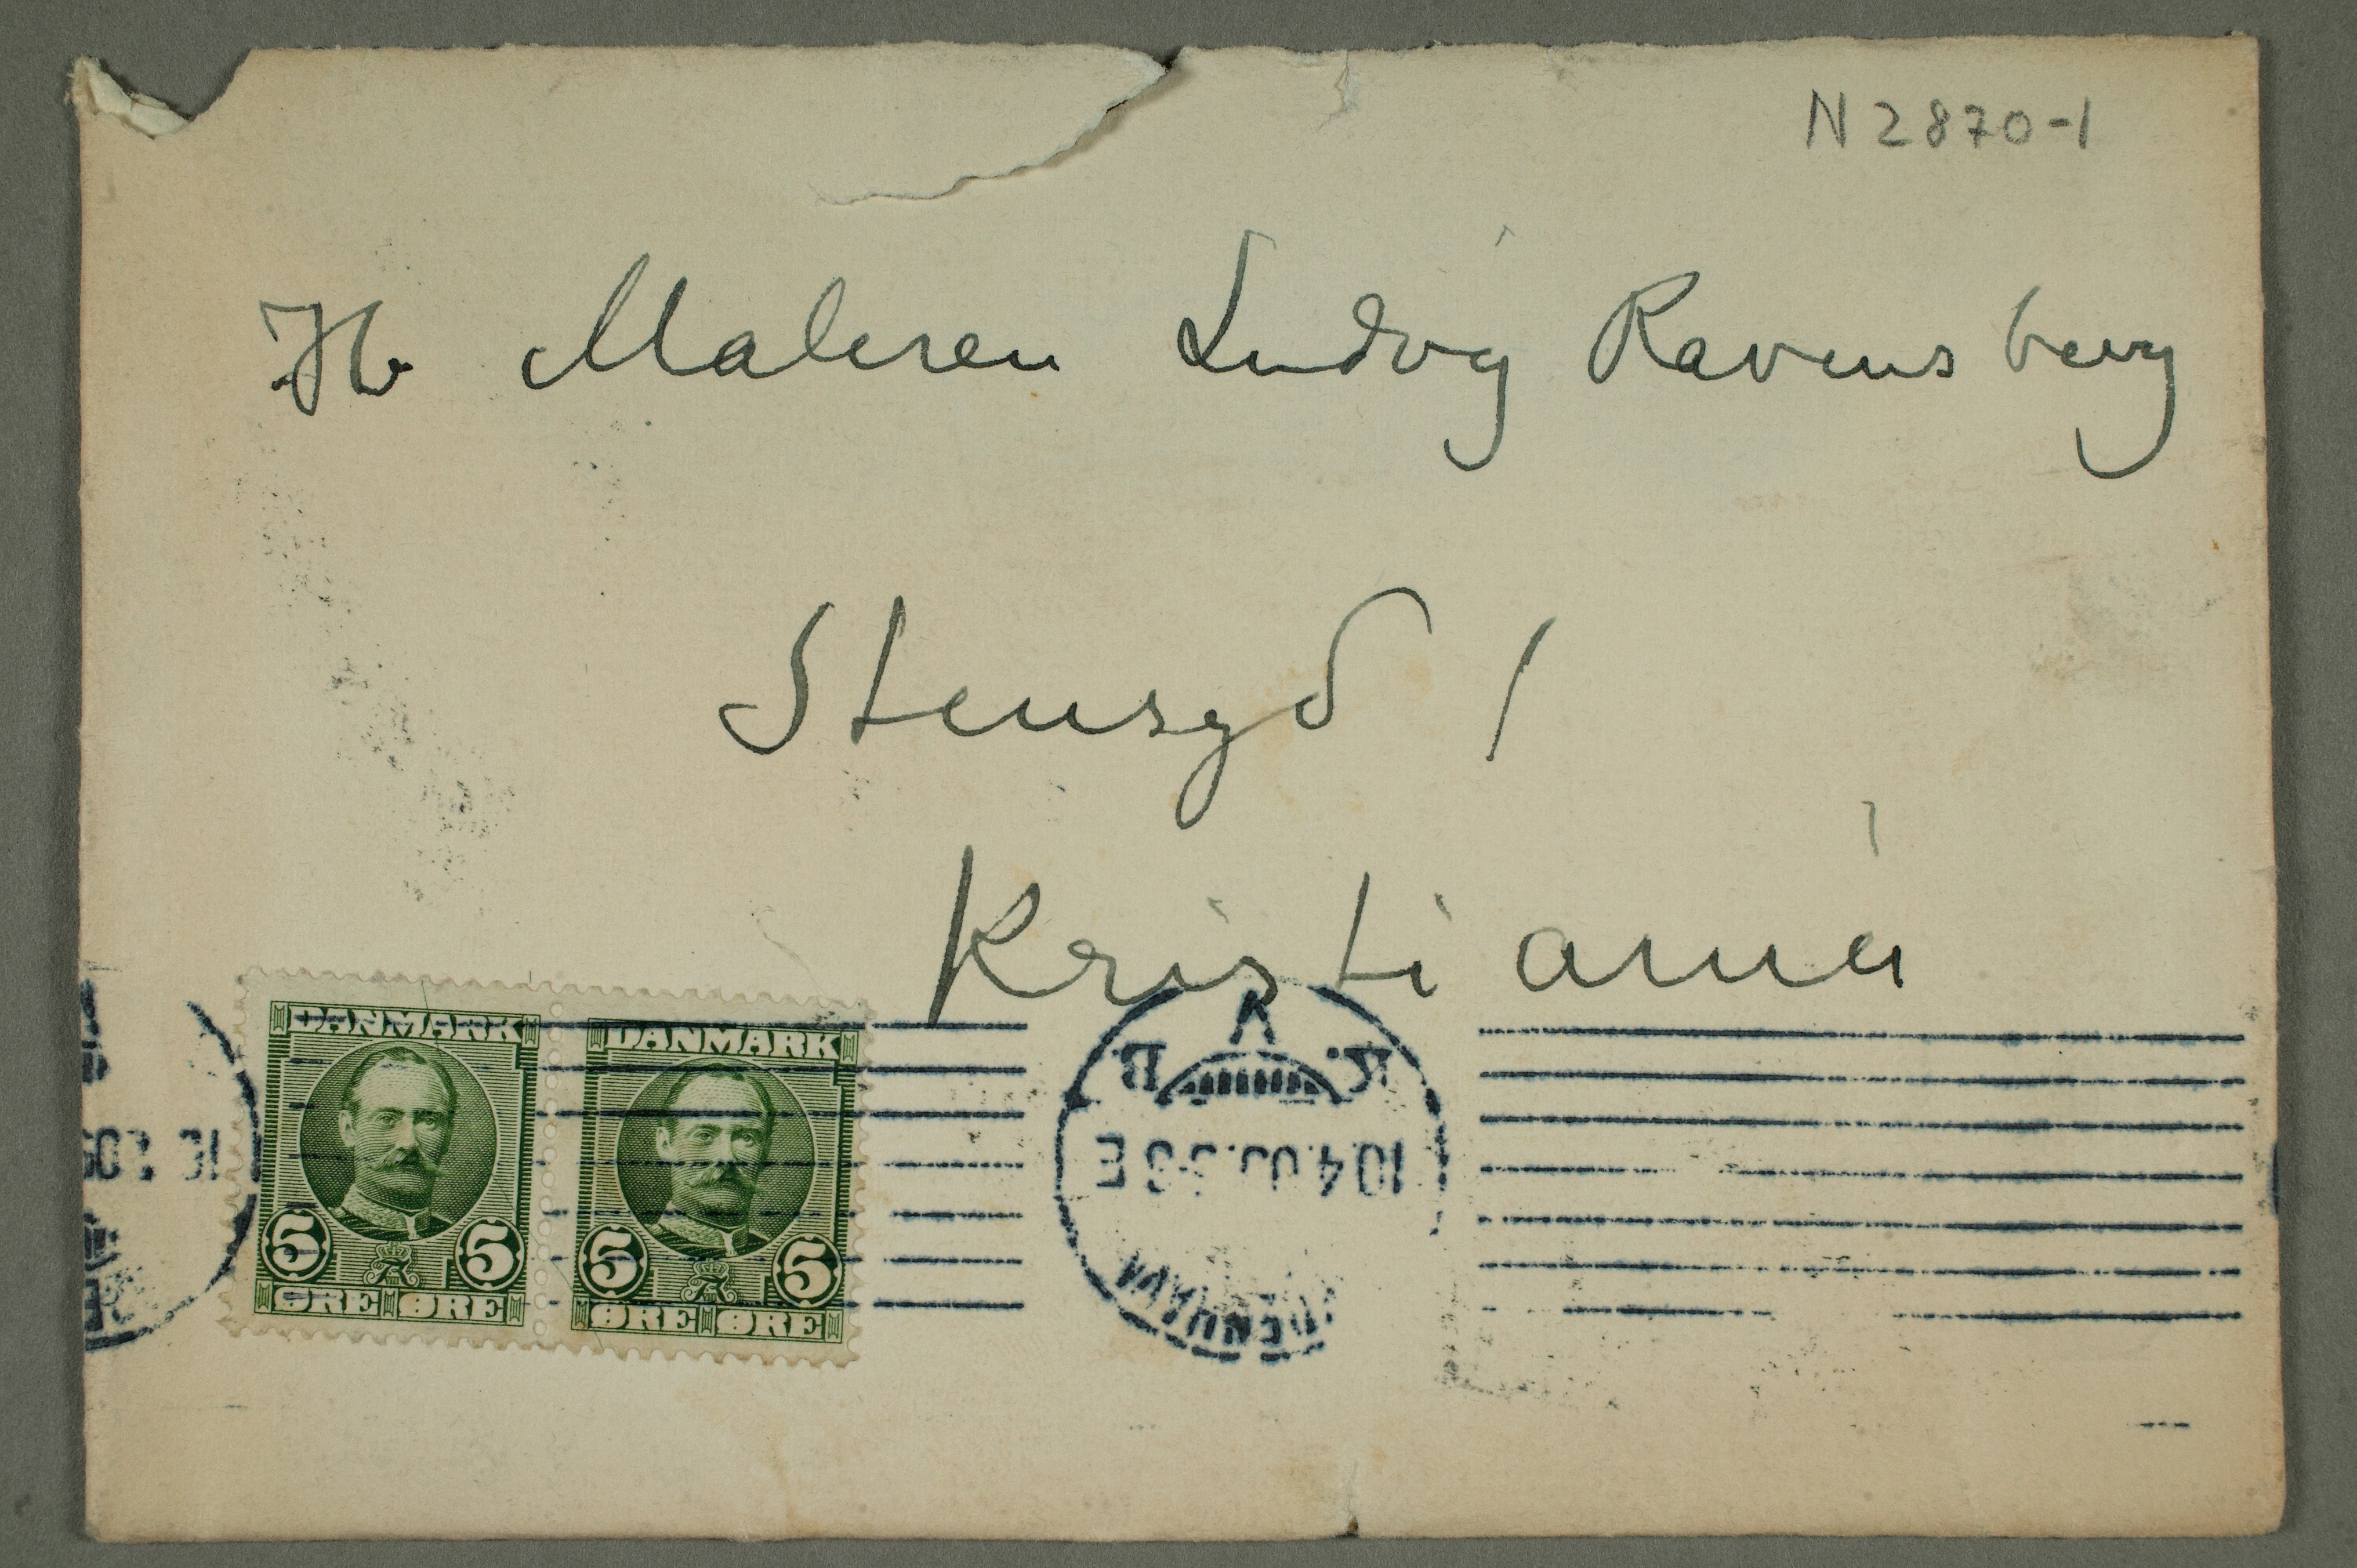 N 2870-1
Hr Maleren Ludvig Ravensberg
Stensgd 1
Kristiania
DANMARK DANMARK
5 5 5 5
ØRE ØRE ØRE ØRE
K. B.
10.4.09.